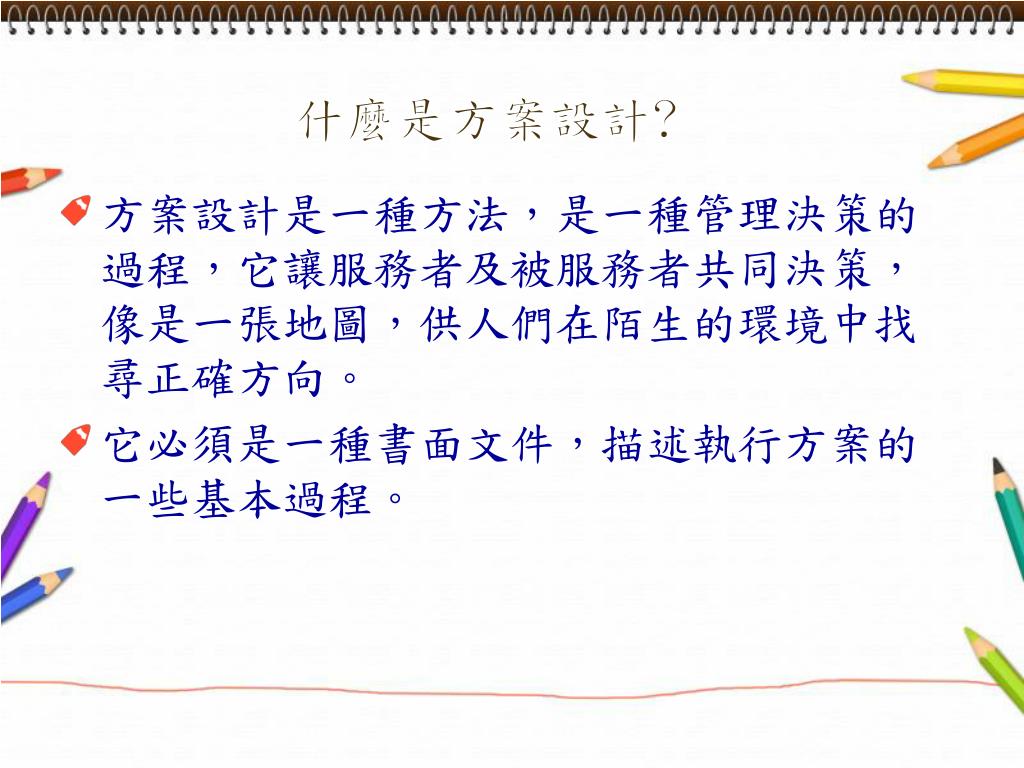 什麼是方案設計?
方案設計是一種方法，是一種管理決策的
過程，它讓服務者及被服務者共同決策，
像是一張地圖，供人們在陌生的環境中找
尋正確方向。
它必須是一種書面文件，描述執行方案的
一些基本過程。